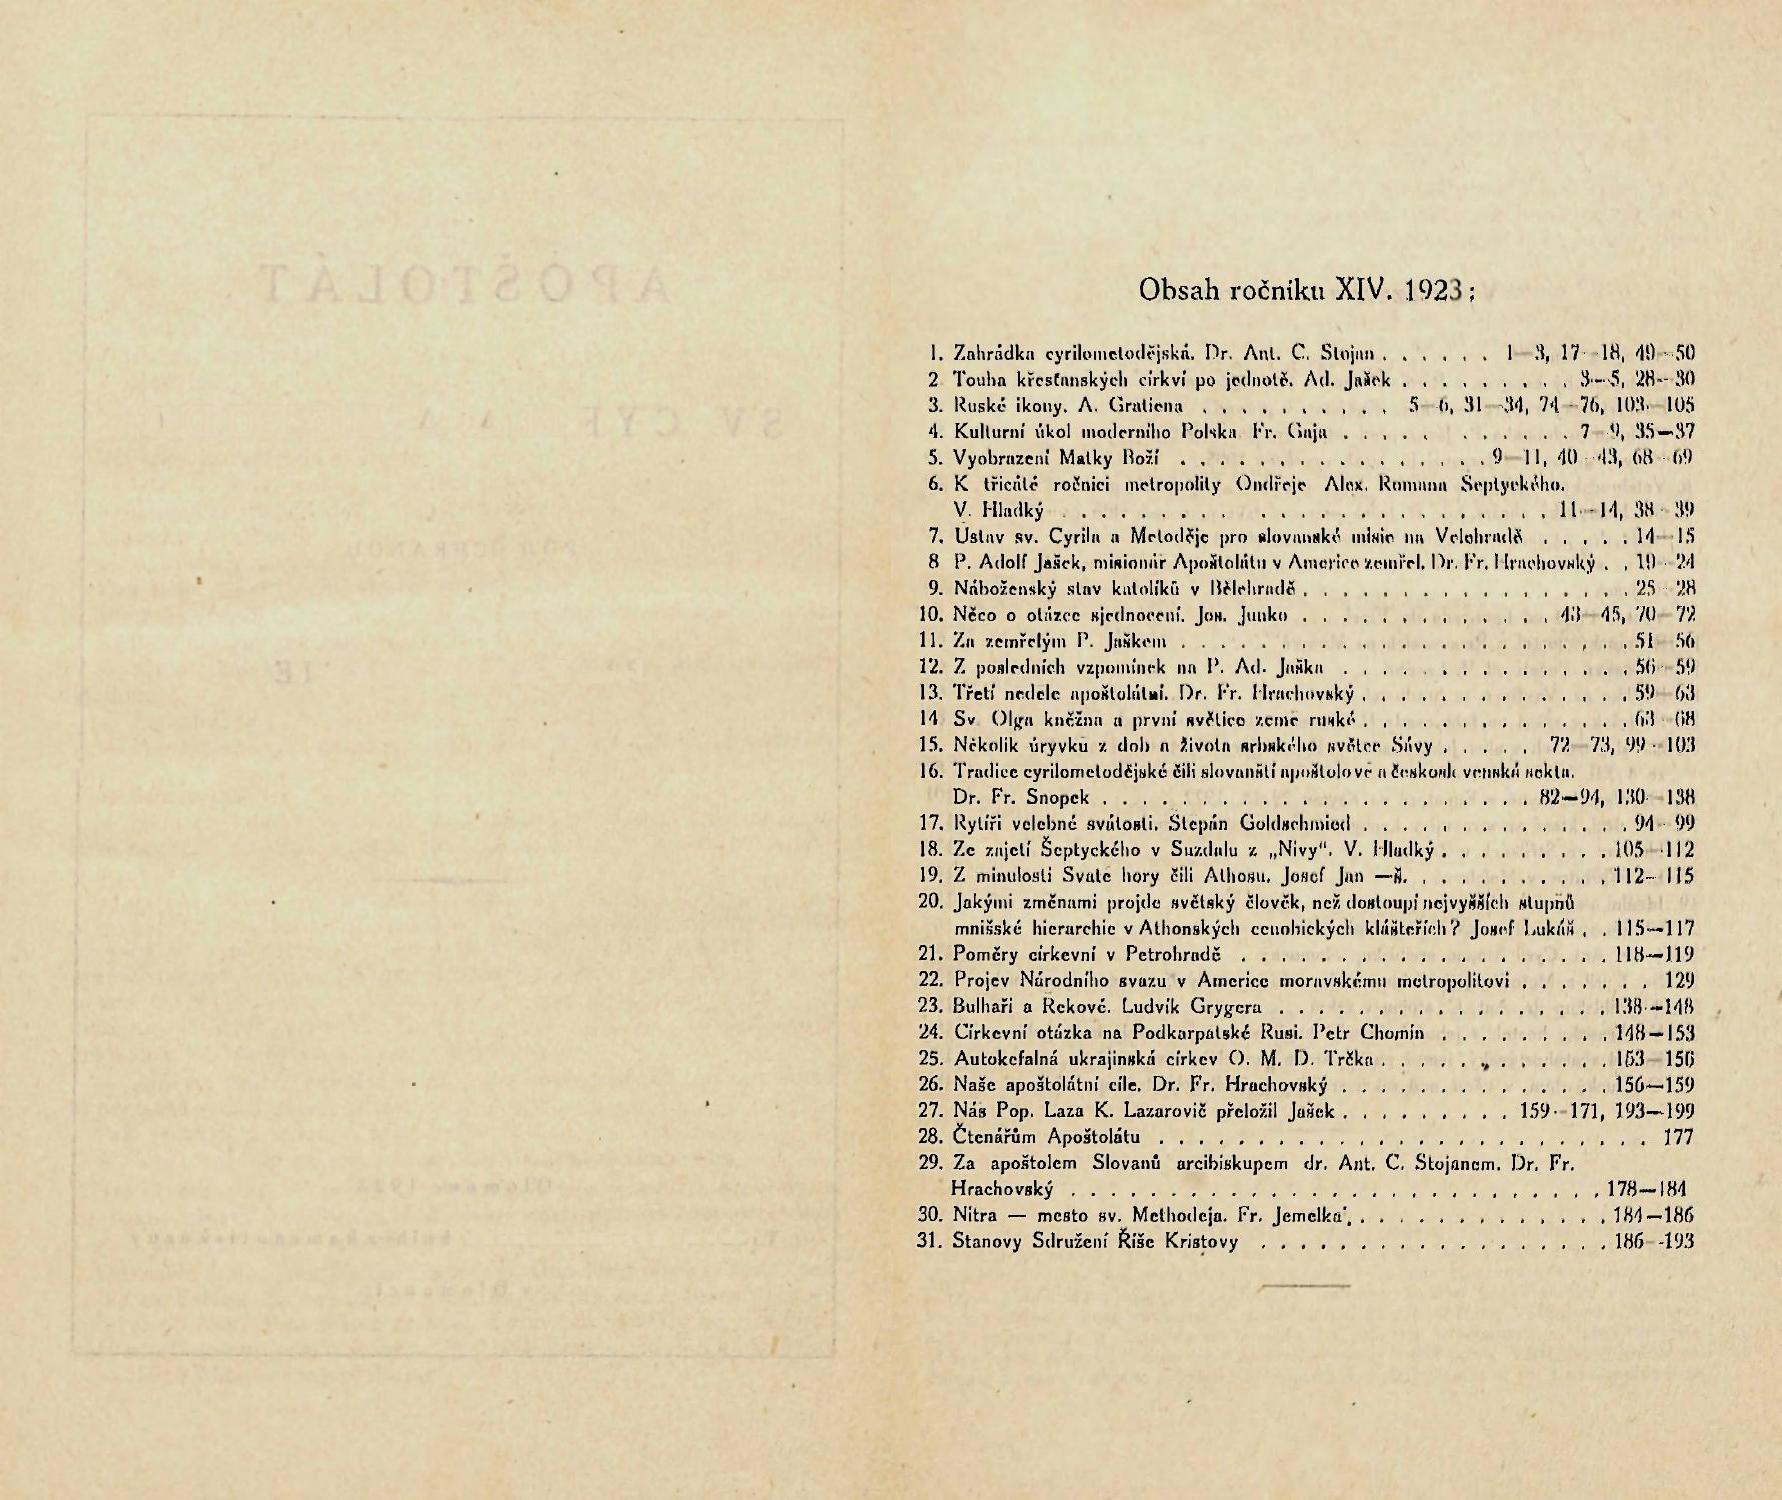 Obsah ročníku XIV. 1923:
1. Zahrádka cyrilometodějská. Dr. Ant. C. Stojan . . . . . . 1—3, 17—18, 49—50
2 Touha křesťanských církví po jednotě. Ad. Jašek . . . . . . . . . 3—5, 28—30
3. Ruské ikony. A. Gratiena . . . . . . . . . . 5—6, 31—34, 74—76, 103—105
4. Kulturní úkol moderního Polska Fr. Gaja . . . . . . . . . . . 7—9, 35—37
5. Vyobrazení Matky Boží . . . . . . . . . . . . . . . . 9—11, 40—43, 68—69
6. K třicáté ročnici metropolity Ondřeje Alex. Romana Šeptyckého.
V. Hladký . . . . . . . . . . . . . . . . . . . . . . . . 11—14, 38—39
7. Ústav sv. Cyrila a Metoděje pro slovanské misie na Velehradě . . . . . 14—15
8 P. Adolf Jašek, misionár Apoštolátu v Americe zemřel. Dr. Fr. Hrachovský . . 19—24
9. Náboženský stav katolíků v Bělehradě . . . . . . . . . . . . . . . . . 25—28
10. Něco o otázce sjednocení. Jos. Junko . . . . . . . . . . . . . 43—45, 70—72
11. Za zemřelým P. Jaškem . . . . . . . . . . . . . . . . . . . . . . . 51—56
12. Z posledních vzpomínek na P. Ad. Jaška . . . . . . . . . . . . . . . 56—59
13. Třetí neděle apoštolátní. Dr. Fr. Hrachovský . . . . . . . . . . . . . . 59—63
14 Sv. Olga kněžna a první světice země ruské . . . . . . . . . . . . . . 63—68
15. Několik úryvku z dob a života srbského světce Sávy . . . . . 72—73, 99—103
16. Tradice cyrilometodějské čili slovanští apoštolové a československá sekta.
Dr. Fr. Snopek . . . . . . . . . . . . . . . . . . . . . . 82—94, 130—138
17. Rytíři velebné svátosti. Štěpán Goldschmied . . . . . . . . . . . . . . 94—99
18. Ze zajetí Šeptyckého v Suzdalu z „Nivy“. V. Hladký . . . . . . . . . 105—112
19. Z minulosti Svaté hory čili Athosu. Josef Jan —ň. . . . . . . . . . . 112—115
20. Jakými změnami projde světský člověk, než dostoupí nejvyšších stupňů
mnišské hierarchie v Athonských cenobických klášteřích? Josef Lukáš . . 115—117
21. Poměry církevní v Petrohradě . . . . . . . . . . . . . . . . . . . 118—119
22. Projev Národního svazu v Americe moravskému metropolitovi . . . . . . . 129
23. Bulhaři a Řekové. Ludvík Grygera . . . . . . . . . . . . . . . . . 138—148
24. Církevní otázka na Podkarpatské Rusi. Petr Chomin . . . . . . . . . 148—153
25. Autokefalná ukrajinská církev O. M. D. Trčka . . . . . . . . . . . . 153—156
26. Naše apoštolátní cíle. Dr. Fr. Hrachovský . . . . . . . . . . . . . . 156—159
27. Nás Pop. Laza K. Lazarovič přeložil Jašek . . . . . . . . . 159—171, 193—199
28. Čtenářům Apoštolátu . . . . . . . . . . . . . . . . . . . . . . . . . 177
29. Za apoštolem Slovanů arcibiskupem dr. Ant. C. Stojanem. Dr. Fr.
Hrachovský . . . . . . . . . . . . . . . . . . . . . . . . . . . 178—184
30. Nitra — mesto sv. Methodeja. Fr. Jemelka . . . . . . . . . . . . . . 184—186
31. Stanovy Sdružení Říše Kristovy . . . . . . . . . . . . . . . . . . 186—193